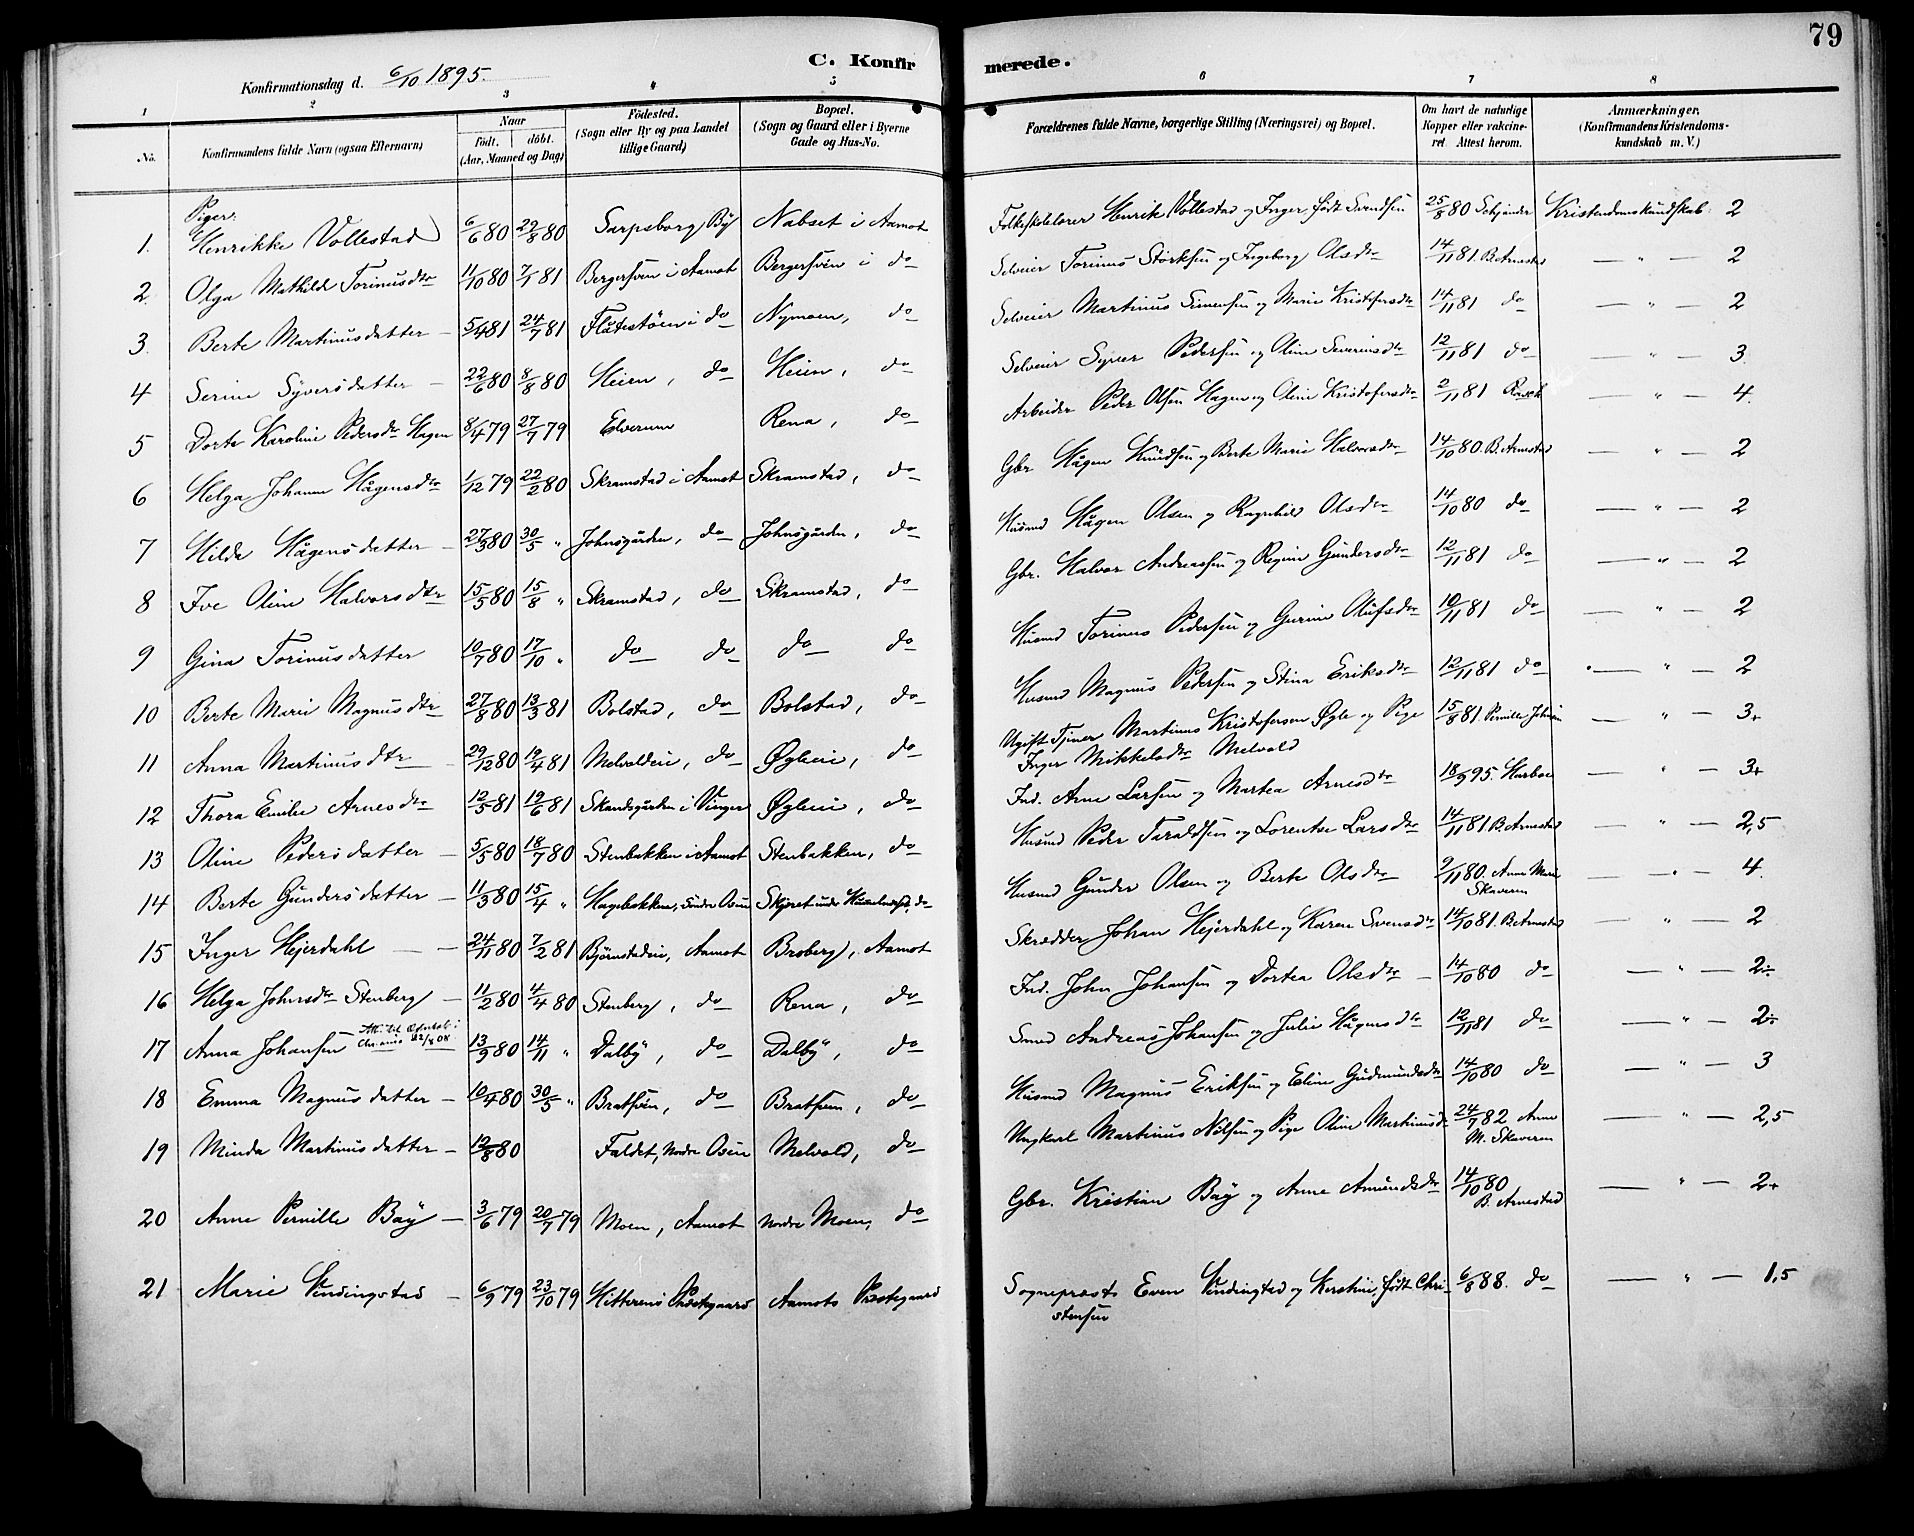 79
C. Konfirmerede.
Konfirmationsdag d. 6/10 1895.
1 2 3 4 5 6 7 8
No. Konfirmandens fulde Navn (ogsaa Efternavn) Naar født. døbt. (Aar, Maaned og Dag) Fødested. (Sogn eller By og paa Landet tillige Gaard) Bopæl. (Sogn og Gaard eller i Byerne Gade og Hus-No. Forældrenes fulde Navne, borgerlige Stilling (Næringsvei) og Bopæl. Om havt de naturlige Kopper eller vakcineret Attest herom. Anmærkninger, (Konfirmandens Kristendomskundskab m. V.)
Piger.
1. Henrikke Vollestad 6/6 80 29/8 80 Sarpsborg By Nabset i Aamot Folkeskolelærer Henrik Vollestad og Inger født Svendsen 25/8 80 Kristendomskundskab: 2
2. Olga Mathilde Torinusdtr 11/10 80 7/1 81 Bergersveen i Aamot Bergersveen i do Selveier Torinus Størksen og Ingeborg Olsdtr 14/11 81 B. Arnestad — " — 2
3. Berte Martinusdatter — 5/4 81 24/7 81 Flåtestøen i do Nymoen, do Selveier Martinus Simensen og Marie Kristofersdtr 14/11 81 do — " — 2
4 Serine Syversdatter — 22/6 80 8/8 80 Heien, do Heien, do Selveier Syver Pedersen og Oline Severinsdtr 12/11 81 do — " — 3
5 Dorte Karoline Pedersdtr Hagen 8/4 79 27/7 79 Elverum Rena, do Arbeider Peder Olsen Hagen og Oline Kristofersdtr 2/11 81 — " — 4.
6 Helga Johanne Hågensdtr 1/12 79 22/2 80 Skramstad i Aamot Skramstad, do Gbr Hågen Knudsen og Berte Marie Halvorsdtr 14/10 80. B. Arnestad — " — 2
7 Hilda Hågensdatter — 27/3 80 30/5 " Johnsgården, do Johnsgården, do Husmd Hågen Olsen og Ragnhild Olsdtr 14/10 80 do — " — 2
8 Ive Oline Halvorsdtr 15/5 80 15/8 " Skramstad, do Skramstad, do Gbr. Halvor Andreassen og Regine Gundersdtr 12/11 81 do — " — 2
9 Gina Torinusdatter 10/7 80 17/10 " do do do do Husmd Torinus Pedersen og Gurine Olufsdtr 10/11 81 do — " — 2
10 Berte Marie Magnusdtr 27/8 80 13/3 81 Bolstad, do Bolstad, do Husmd Magnus Pedersen og Stina Eriksdtr 12/11 81 do — " — 2
11 Anna Martinusdtr 29/12 80 19/4 81 Melvoldeie, do Ögleie, do Ugift Tjener Martinus Kristofersen Øgle og Pige 15/8 81 Pernille Johnsen — " — 3+
Inger Mikkelsdtr Melvold
12 Thora Emilie Arnesdtr 12/5 81 19/6 81 Skandsgården i Vinger Ögleie, do Ind. Arne Larsen og Martea Arnesdtr 18/9 95 Harboe — " — 3+
13 Oline Pedersdatter — 5/5 80 18/7 80 Stenbakken i Aamot Stenbakken, do Husmd Peder Taraldsen og Lorentse Larsdtr 14/11 81 B. Arnestad — " — 2,5
14 Berte Gundersdatter — 11/3 80 15/4 " Hagebakken, søndre Osen Skjæret do Husmd Gunder Olsen og Berte Olsdtr 2/11 80. Anne Marie — " — 4.
Skaveren
15 Inger Hejerdahl — — 24/11 80 7/2 81 Bjørnstadeie, Aamot Broberg, Aamot Skrædder Johan Hejerdahl og Karen Svensdtr 14/10 81 B. Arnestad — " — 2
16 Helga Johnsdtr Stenberg — 11/2 80 4/4 80 Stenberg, do Rena, do Ind. John Johansen og Dortea Olsdtr — 14/10 80 do — " — 2÷
17 Anna Johansen 13/9 80 14/11 " Dalby, do Dalby, do Smed Andreas Johansen og Julie Hågensdtr 12/11 81 do — " — 2÷
18 Emma Magnusdatter — 10/4 80 30/5 " Bratsveen, do Bratsveen, do Husmd Magnus Eriksen og Eline Gudmundsdtr 14/10 80 do — " — 3
19 Minda Martinusdatter — 12/8 80 Faldet, Nordre Osen Melvold, do Ungkarl Martinus Nilsen og Pige Oline Martinusdtr 24/7 82 Anne — " — 2,5
M. Skaveren
20 Anne Pernille Bay — 3/6 79 20/7 79 Moen, Aamot Nordre Moen, do Gbr. Kristian Bay og Anne Amundsdtr 14/10 80 — " — 2+
B. Arnestad
21 Marie Vendingstad — 6/9 79 23/10 79 Hitterens Præstegaard Aamots Præstegaard Sognepræst Even Vendingstad og Kirstine, født Chri- 6/8 88. do — " — 1,5
stensen